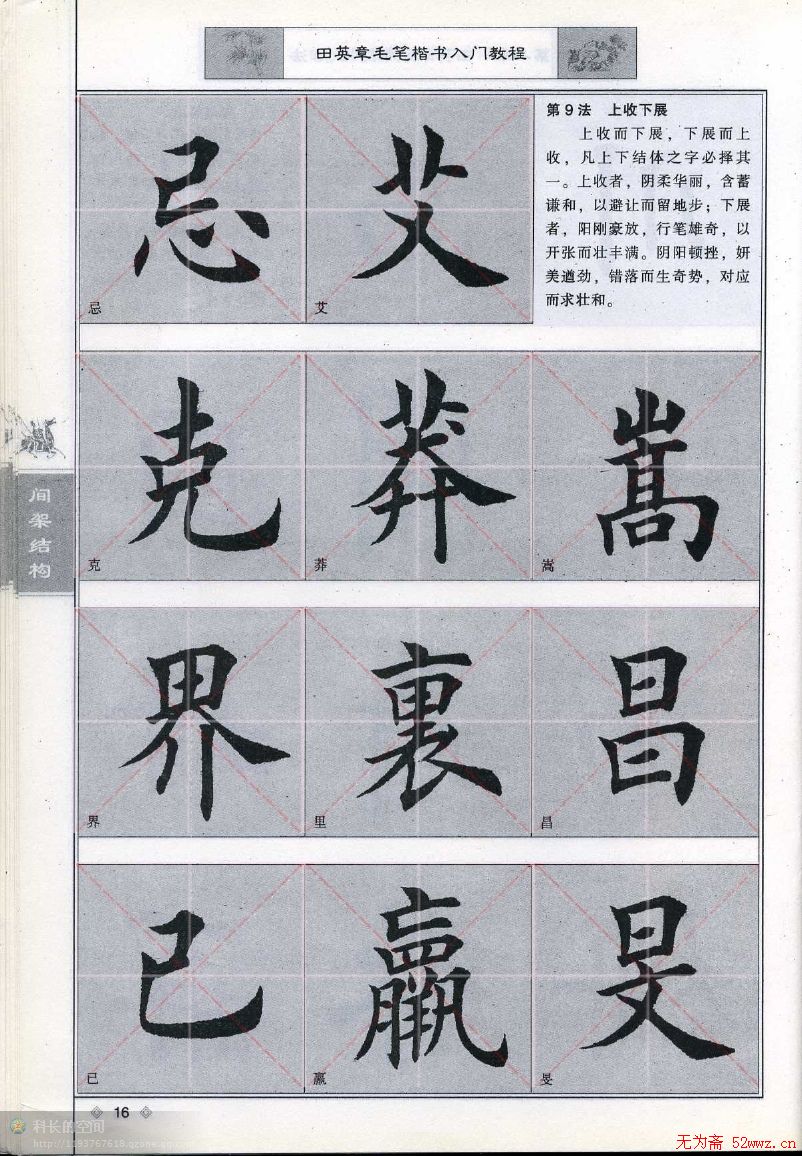 田英章毛笔楷书入门教程
第9法 上收下展
上收而下展，下展而上
收，凡上下结体之字必择其
一。上收者，阴柔华丽，含蓄
谦和，以避让而留地步；下展
者，阳刚豪放，行笔雄奇，以
开张而壮丰满。阴阳顿挫，妍
美遒劲，错落而生奇势，对应
而求壮和。
忌 艾
忌 艾
克 莽 嵩
克 莽 嵩
界 裏 昌
界 里 昌
已 羸 旻
已 羸 旻
间架结构
16
科长的空间
http://1193767618.qzone.qq.com
无为斋 52wwz.cn